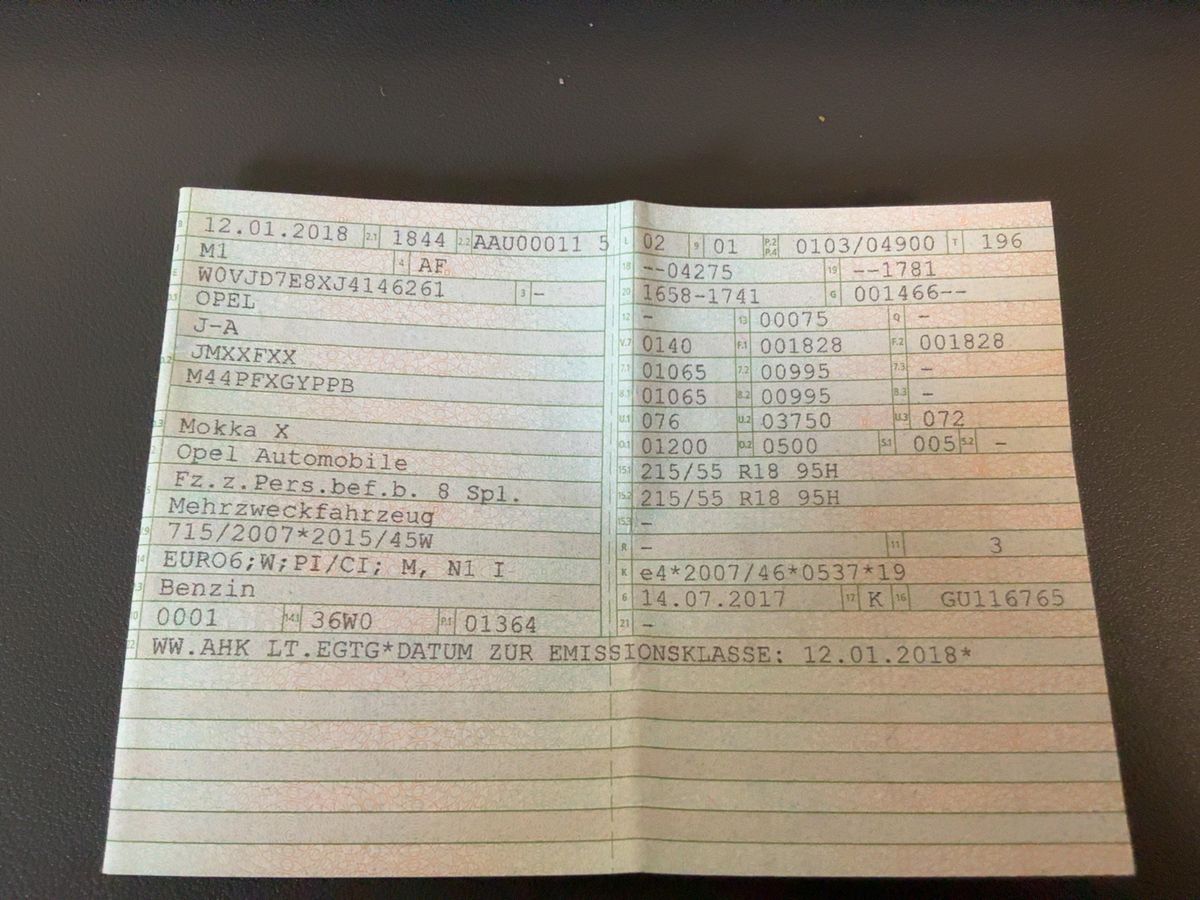 B 12.01.2018 2.1 1844 2.2 AAU00011 5
J M1 4 AF
E W0VJD7E8XJ4146261 3 -
D.1 OPEL
J-A
D.2 JMXXFXX
M44PFXGYPPB
D.3 Mokka X
2 Opel Automobile
5 Fz.z.Pers.bef.b. 8 Spl.
Mehrzweckfahrzeug
V.9 715/2007*2015/45W
14 EURO6;W;PI/CI; M, N1 I
P.3 Benzin
10 0001 14.1 36W0 P.1 01364
L 02 9 01 P.2 P.4 0103/04900 T 196
18 --04275 19 --1781
20 1658-1741 G 001466--
12 - 13 00075 Q -
V.7 0140 F.1 001828 F.2 001828
7.1 01065 7.2 00995 7.3 -
8.1 01065 8.2 00995 8.3 -
U.1 076 U.2 03750 U.3 072
O.1 01200 O.2 0500 S.1 005 S.2 -
15.1 215/55 R18 95H
15.2 215/55 R18 95H
15.3 -
R - 11 3
K e4*2007/46*0537*19
6 14.07.2017 17 K 16 GU116765
21 -
22 WW.AHK LT.EGTG*DATUM ZUR EMISSIONSKLASSE: 12.01.2018*